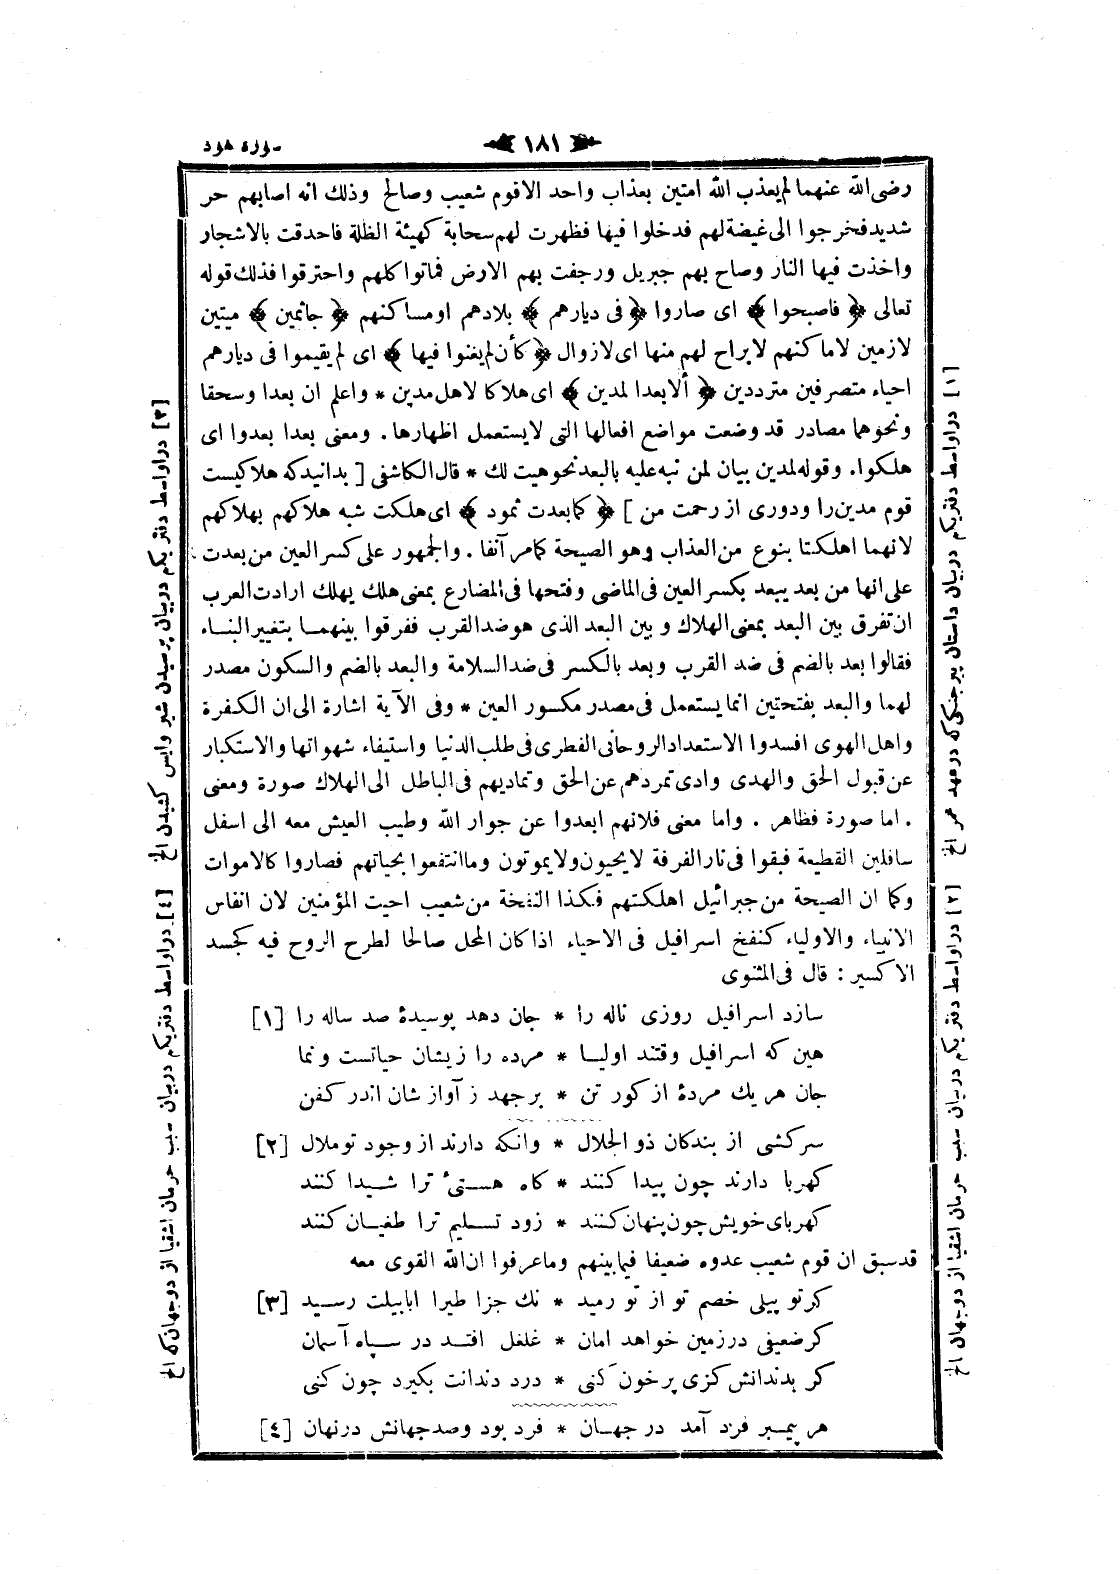 سورة هود
١٨١
رضى الله عنهما لم يعذب الله امتين بعذاب واحد الا قوم شعيب وصالح وذلك انه اصابهم حر
شديد فخرجوا الى غيضة لهم فدخلوا فيها فظهرت لهم سحابة كهيئة الظلة فاحدقت بالاشجار
واخذت فيها النار وصاح بهم جبريل ورجفت بهم الارض فماتوا كلهم واحترقوا فذلك قوله
تعالى ﴿ فاصبحوا ﴾ اى صاروا ﴿ فى ديارهم ﴾ بلادهم او مساكنهم ﴿ جاثمين ﴾ ميتين
لازمين لاماكنهم لا براح لهم منها اى لا زوال ﴿ كأن لم يغنوا فيها ﴾ اى لم يقيموا فى ديارهم
احياء متصرفين مترددين ﴿ ألا بعدا لمدين ﴾ اى هلاكا لاهل مدين * واعلم ان بعدا وسحقا
ونحوهما مصادر قد وضعت مواضع افعالها التى لا يستعمل اظهارها. ومعنى بعدا بعدوا اى
هلكوا. وقوله لمدين بيان لمن نبه عليه بالبعد نحو هيت لك * قال الكاشفى [ بدانيد كه هلاكيست
قوم مدين را ودورى از رحمت من ] ﴿ كما بعدت ثمود ﴾ اى هلكت شبه هلاكهم بهلاكهم
لانهما اهلكتا بنوع من العذاب وهو الصيحة كما مر آنفا . والجمهور على كسر العين من بعدت
على انها من بعد يبعد بكسر العين فى الماضى وفتحها فى المضارع بمعنى هلك يهلك ارادت العرب
ان تفرق بين البعد بمعنى الهلاك و بين البعد الذى هو ضد القرب ففرقوا بينهما بتغيير البناء
فقالوا بعد بالضم فى ضد القرب وبعد بالكسر فى ضد السلامة والبعد بالضم والسكون مصدر
لهما والبعد بفتحتين انما يستعمل فى مصدر مكسور العين * وفى الآية اشارة الى ان الكفرة
واهل الهوى افسدوا الاستعداد الروحانى الفطرى فى طلب الدنيا واستيفاء شهواتها والاستكبار
عن قبول الحق والهدى وادى تمردهم عن الحق وتماديهم فى الباطل الى الهلاك صورة ومعنى
. اما صورة فظاهر . واما معنى فلانهم ابعدوا عن جوار الله وطيب العيش معه الى اسفل
سافلين القطيعة فبقوا فى نار الفرقة لا يحيون ولا يموتون وما انتفعوا بحياتهم فصاروا كالاموات
وكما ان الصيحة من جبرائيل اهلكتهم فكذا النفخة من شعيب احيت المؤمنين لان انفاس
الانبياء والاولياء كنفخ اسرافيل فى الاحياء اذا كان المحل صالحا لطرح الروح فيه كجسد
الاكسير : قال فى المثنوى
سازد اسرافيل روزى ناله را * جان دهد پوسيدۀ صد ساله را [١]
هين كه اسرافيل وقتند اوليا * مرده را زيشان حياتست ونما
جان هريك مردۀ از كور تن * برجهد ز آواز شان اندر كفن
سركشى از بندكان ذو الجلال * وانكه دارند از وجود تو ملال [٢]
كهربا دارند چون پيدا كنند * كاه هستئ ترا شيدا كنند
كهرباى خويش چون پنهان كنند * زود تسليم ترا طغيان كنند
قد سبق ان قوم شعيب عدوه ضعيفا فيما بينهم وما عرفوا ان الله القوى معه
كر تو پيلى خصم تو از تو رميد * نك جزا طيرا ابابيلت رسيد [٣]
كر ضعيفى در زمين خواهد امان * غلغل افتد در سپاه آسمان
كر بدندانش كزى پر خون كنى * درد دندانت بكيرد چون كنى
هر پيمبر فرد آمد در جهان * فرد بود وصد جهانش در نهان [٤]
[١] در اواسط دفتر يكم در بيان داستان پير چنكى كه در عهد عمر الخ
[٢] در اواسط دفتر يكم در بيان سبب حرمان اشقيا از دو جهان الخ
[٣] در اواسط دفتر يكم در بيان پرسيدن شير وا پس كشيدن الخ
[٤] در اواسط دفتر يكم در بيان سبب حرمان اشقيا از دو جهان كه الخ